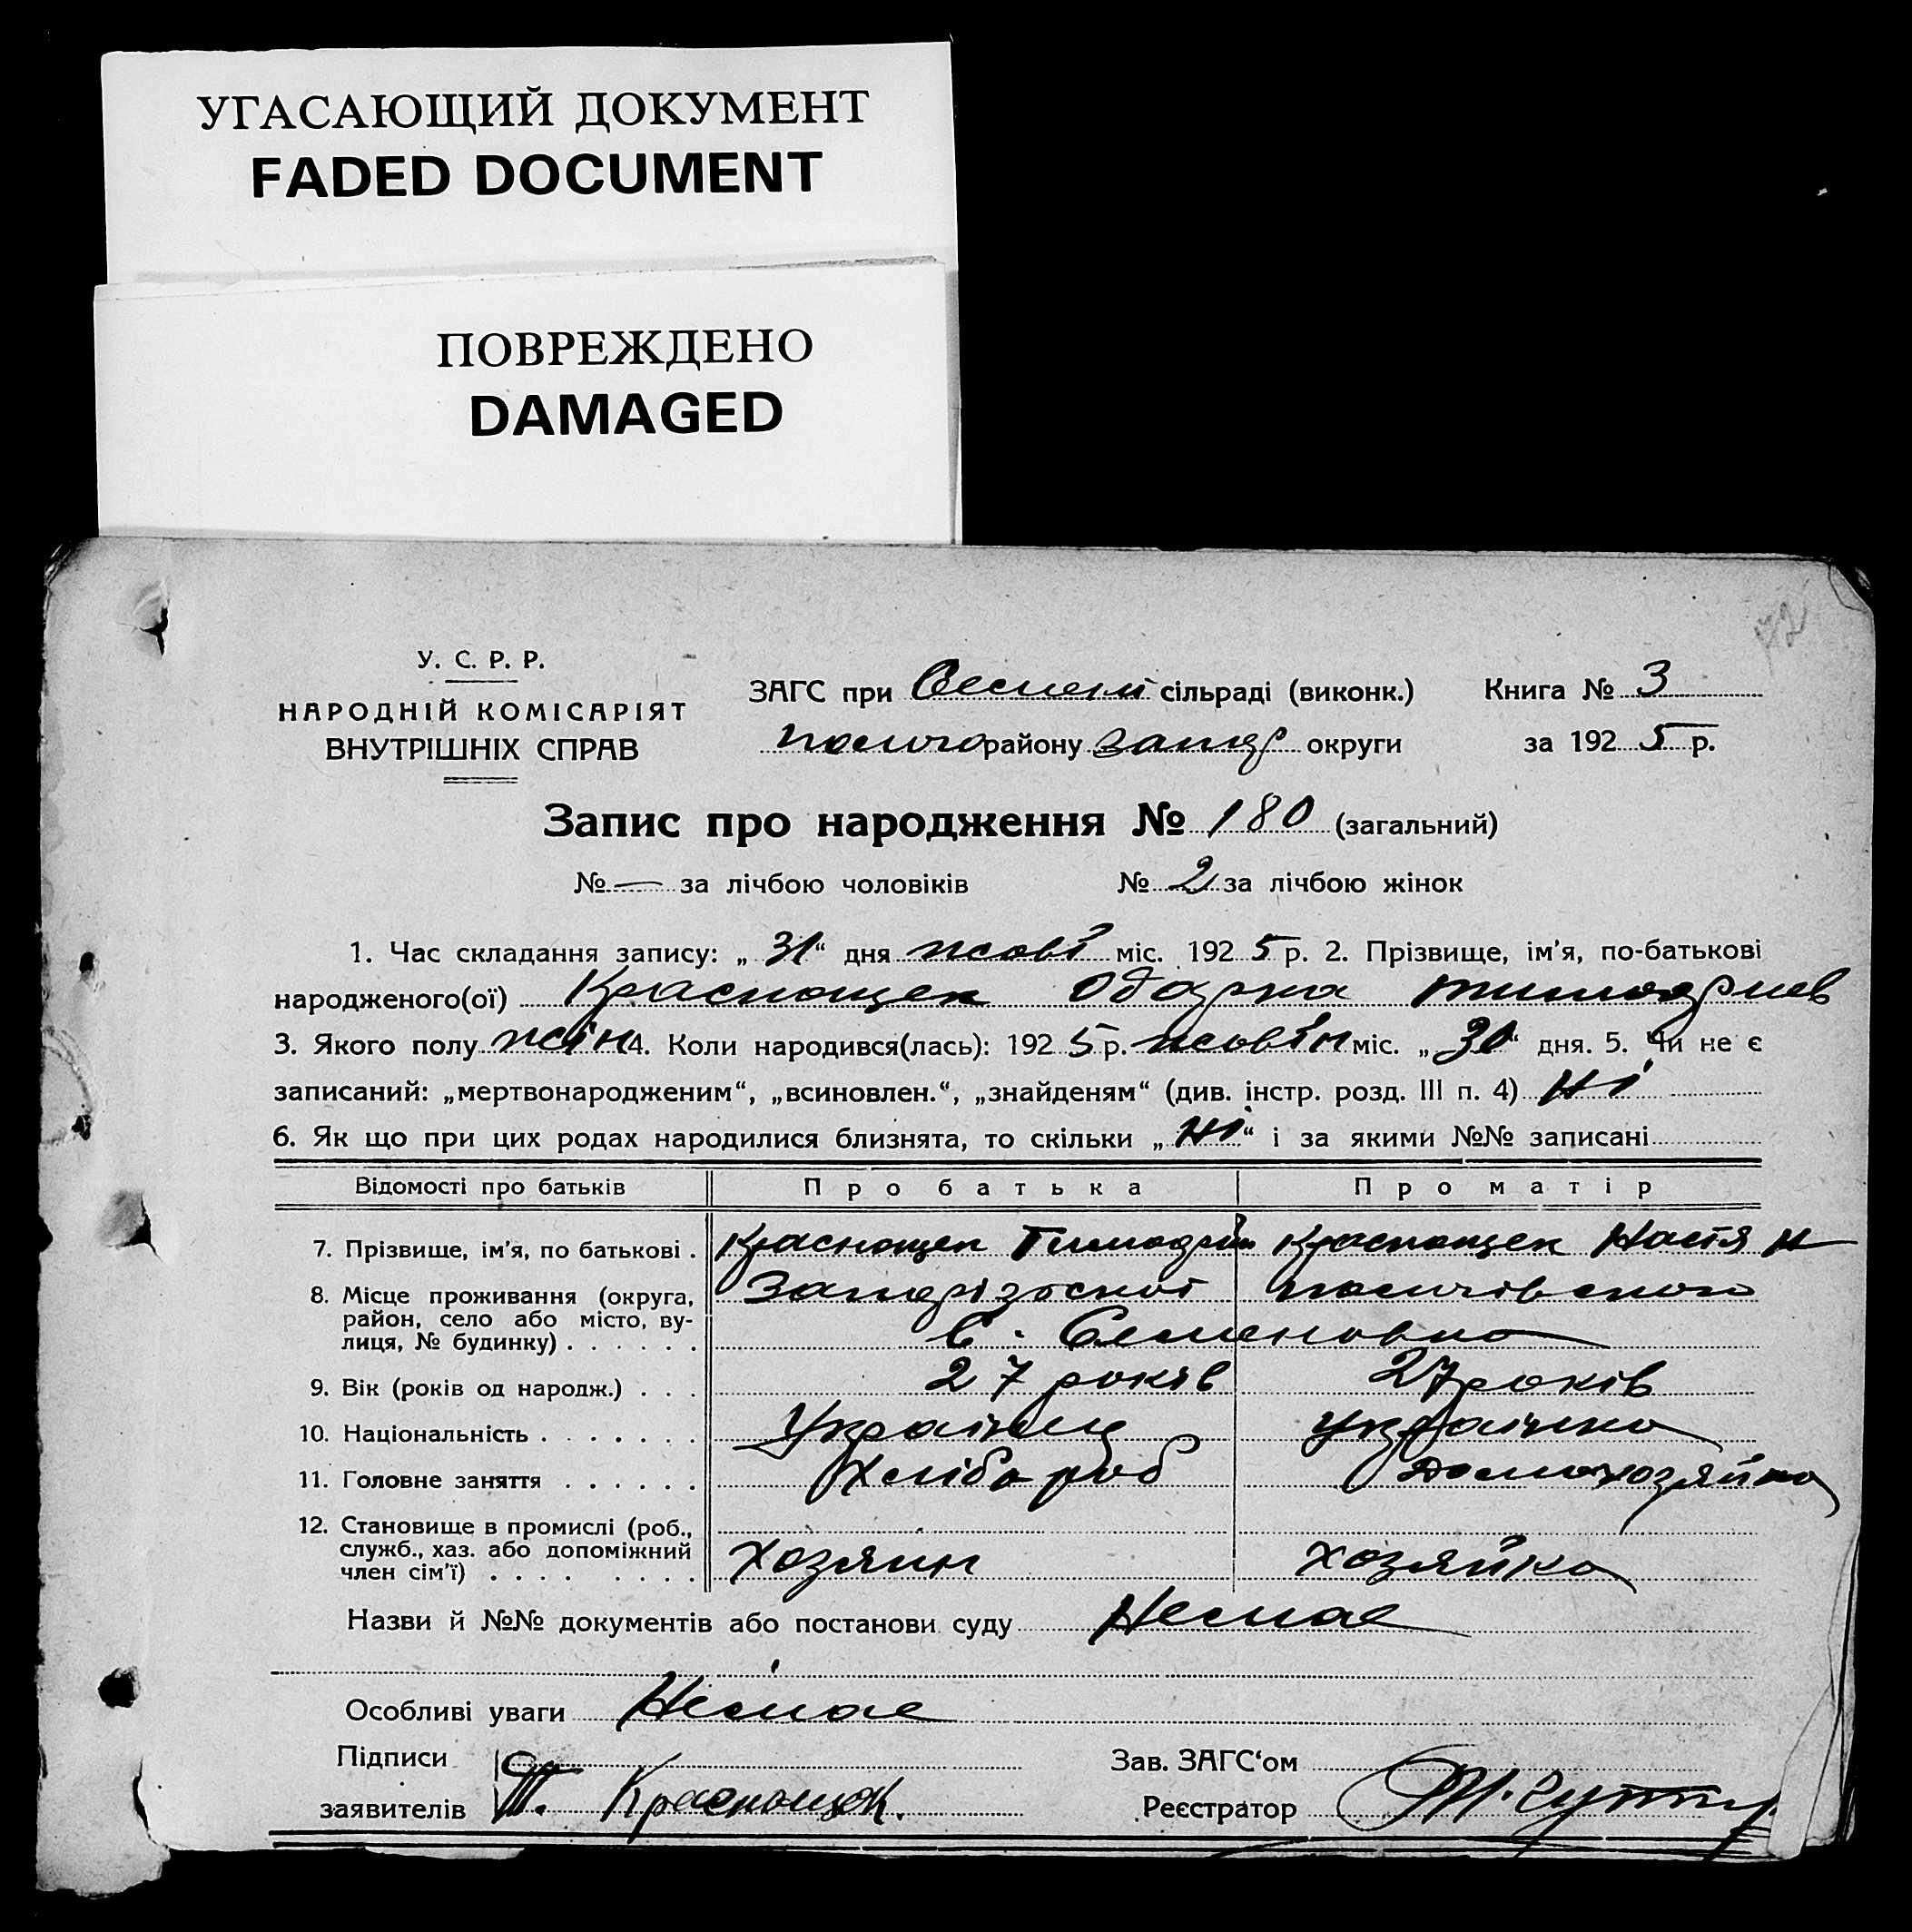 УГАСАЮЩИЙ ДОКУМЕНТ
FADED DOCUMENT
ПОВРЕЖДЕНО
DAMAGED
72
У. С. Р. Р.
НАРОДНІЙ КОМІСАРІЯТ
ВНУТРІШНІХ СПРАВ
ЗАГС при сільраді (виконк.)
району округи
Книга № 3
за 192 5 р.
Запис про народження № 180 (загальний)
№ — за лічбою чоловіків № 2 за лічбою жінок
1. Час складання запису: „ 31 “ дня жовт міс. 192 5 р. 2. Прізвище, ім'я, по-батькові
народженого(ої) Краснощек Одарка
3. Якого полу жін 4. Коли народився(лась): 192 5 р. міс. „ 30 “ дня. 5. Чи не є
записаний: „мертвонародженим“, „всиновлен.“, „знайденям“ (див. інстр. розд. III п. 4) Ні
6. Як що при цих родах народилися близнята, то скільки „ Ні “ і за якими №№ записані
Відомості про батьків Про батька Про матір
7. Прізвище, ім'я, по батькові . Краснощек Краснощек Настя Н
8. Місце проживання (округа, район, село або місто, вулиця, № будинку) . . . . . . Запорізської
С. Семеновка
9. Вік (років од народж.) . . . 27 років 27 років
10. Національність . . . . . . . Українец Українка
11. Головне заняття . . . . . . Хлібороб Домохозяйка
12. Становище в промислі (роб., служб., хаз. або допоміжний член сім'ї) . . . . . . . . Хозяин Хозяйка
Назви й №№ документів або постанови суду Немае
Особливі уваги Немае
Підписи
заявителів Т. Краснощок.
Зав. ЗАГС'ом
Реєстратор